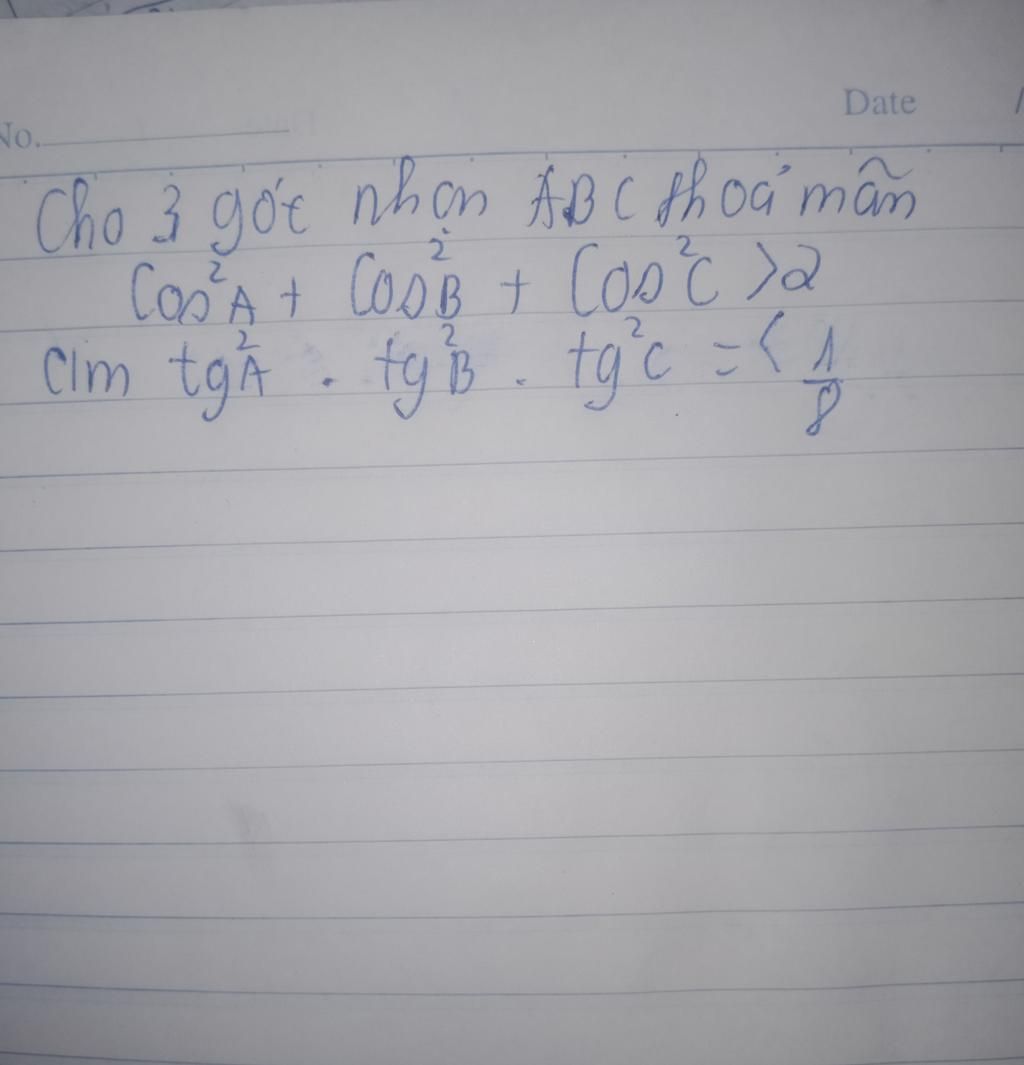 No.
Date /
Cho 3 góc nhọn ABC thoả mãn
Cos²A + Cos²B + Cos²C >2
CIm tg²A . tg²B . tg²C =< 1/8